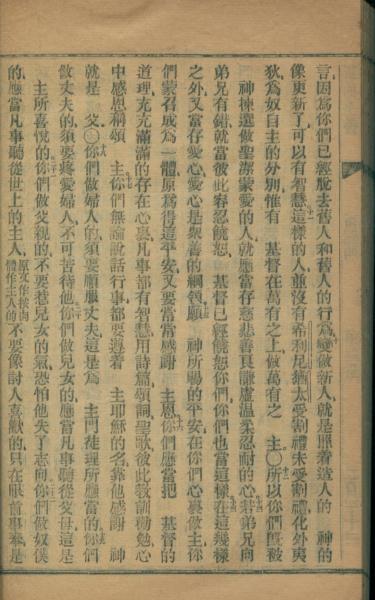 言因爲你們已經脫去舊人和舊人的行爲變做新人就是照着造人的　神的
像更新了可以有智慧這樣的人並沒有希利尼猶太受割禮未受割禮化外夷
狄爲奴自主的分別惟有　基督在萬有之上做萬有之　主○所以你們旣被
神揀選做聖潔蒙愛的人就應當存慈悲善良謙虛温柔忍耐的心若弟兄向
弟兄有錯就當彼此容忍饒恕　基督已經饒恕你們你們也當這樣在這幾樣
之外又當存愛心愛心是衆善的綱領願　神所賜的平安在你們心裏做主你
們蒙召成爲一體原爲得這平安又要當常感謝　主恩你們應當把　基督的
道理充充滿滿的存在心裏凡事都有智慧用詩篇頌詞聖歌彼此教訓勸勉心
中感恩稱頌　主你們無論說話行事都要遵着　主耶穌的名靠他感謝　神
就是　父○你們做婦人的須要順服丈夫這是爲　主門徒理所應當的你們
做丈夫的須要疼愛婦人不可苦待他你們做兒女的應當凡事聽從父母這是
主所喜悅的你們做父親的不要惹兒女的氣恐怕他失了志向你們做奴僕
的應當凡事聽從世上的主人原文作按肉體作主人的不要像討人喜歡的只在眼前事奉是